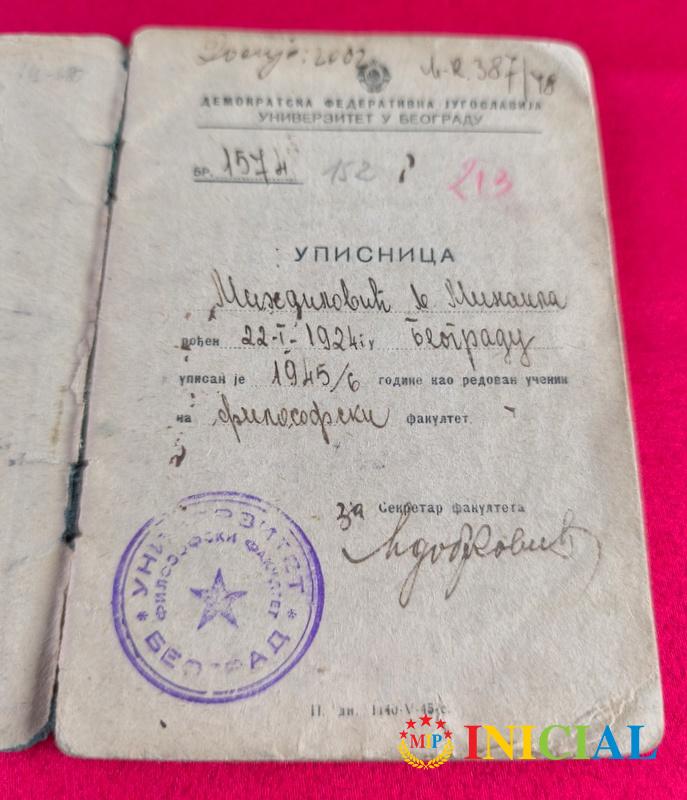 Досије: 2002
387/48
ДЕМОКРАТСКА ФЕДЕРАТИВНА ЈУГОСЛАВИЈА
УНИВЕРЗИТЕТ У БЕОГРАДУ
БР. 1574 152 213
УПИСНИЦА
Михаила
рођен 22-I-1924 г у Београду
уписан је 1945/6 године као редован ученик
на филозофски факултет
за Секретар факултета
УНИВЕРЗИТЕТ
ФИЛОСОФСКИ ФАКУЛТЕТ
* БЕОГРАД *
1140-V-45-с.
MP INICIAL